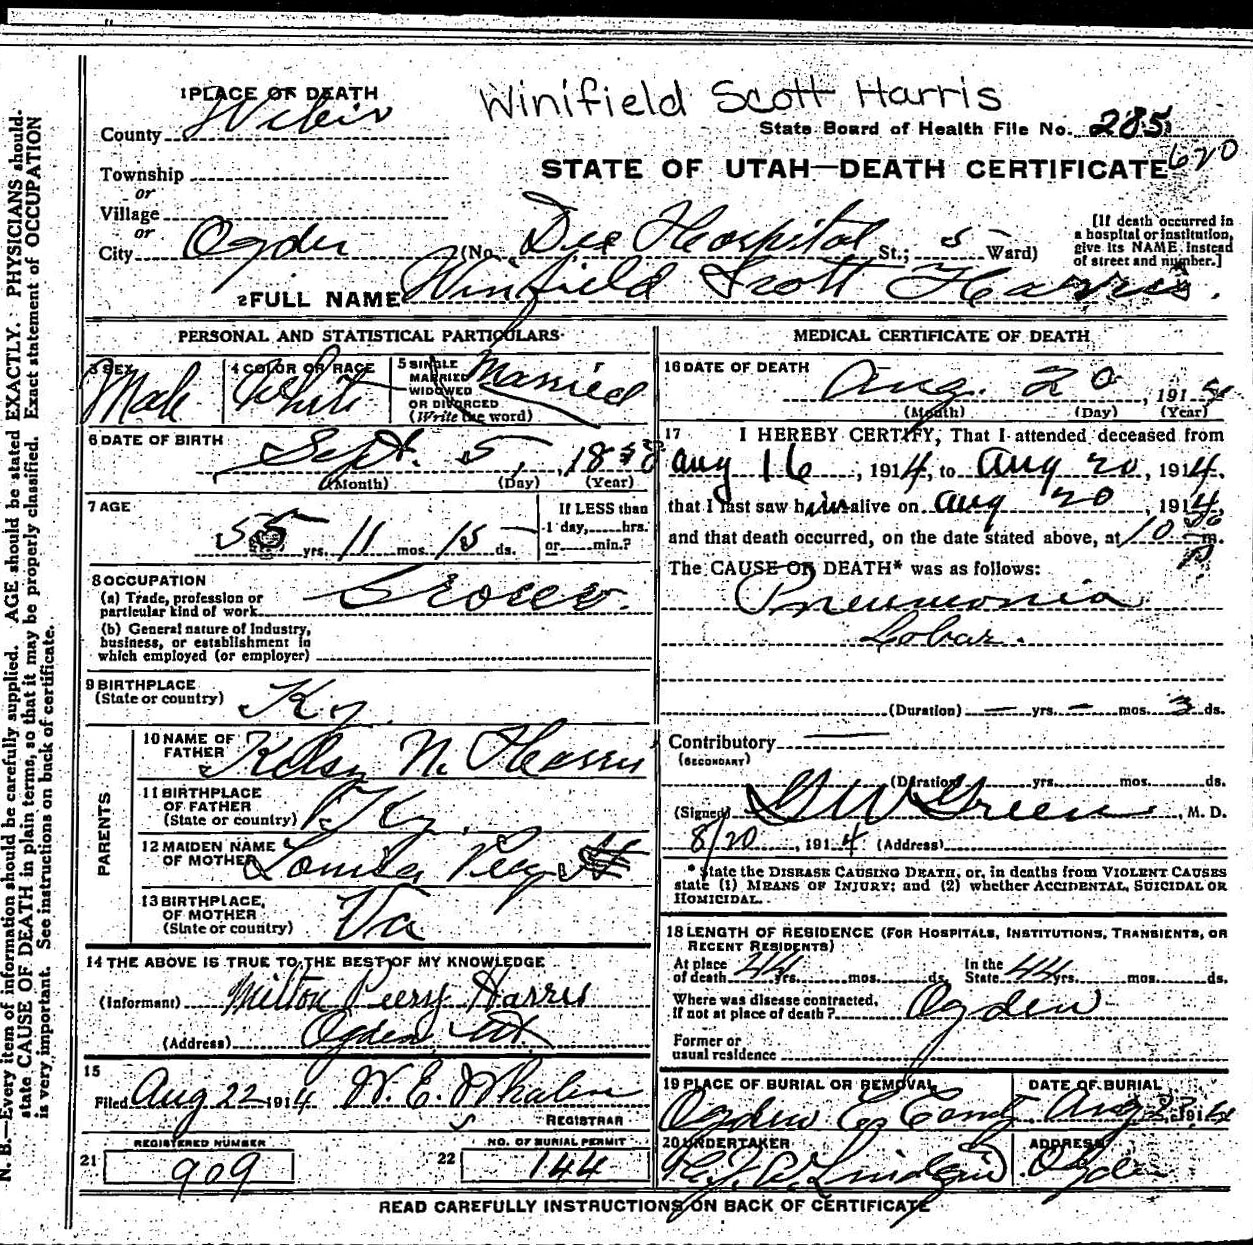 Winifield Scott Harris
1 PLACE OF DEATH
County Weber
State Board of Health File No. 285
620
STATE OF UTAH—DEATH CERTIFICATE
Township
or
Village
or
City Ogden (No. Dee Hospital St.; 5 Ward)
[If death occurred in
a hospital or institution,
give its NAME instead
of street and number.]
2 FULL NAME Winfield Scott Harris.
PERSONAL AND STATISTICAL PARTICULARS
3 SEX
Male
4 COLOR OR RACE
White
5 SINGLE
MARRIED
WIDOWED
OR DIVORCED
(Write the word)
Married
6 DATE OF BIRTH
Sept. 5, 1858
(Month) (Day) (Year)
7 AGE
55 yrs. 11 mos. 15 ds.
If LESS than
1 day, hrs.
or min.?
8 OCCUPATION
(a) Trade, profession or
particular kind of work Grocer.
(b) General nature of Industry,
business, or establishment in
which employed (or employer)
9 BIRTHPLACE
(State or country) Ky.
PARENTS
10 NAME OF
FATHER N. Harris
11 BIRTHPLACE
OF FATHER
(State or country) Ky.
12 MAIDEN NAME
OF MOTHER Louisa
13 BIRTHPLACE,
OF MOTHER
(State or country) Va
14 THE ABOVE IS TRUE TO THE BEST OF MY KNOWLEDGE
(Informant) Milton Peery Harris
(Address) Ogden Ut
15
Filed Aug 22 1914 W. E. Whalen
REGISTRAR
REGISTERED NUMBER
21 909
NO. OF BURIAL PERMIT
22 144
MEDICAL CERTIFICATE OF DEATH
16 DATE OF DEATH
Aug. 20, 191
(Month) (Day) (Year)
17 I HEREBY CERTIFY, That I attended deceased from
Aug 16, 1914, to Aug 20, 1914,
that I last saw him alive on Aug 20, 1914,
and that death occurred, on the date stated above, at 10 m.
P
The CAUSE OF DEATH* was as follows:
Pneumonia
Lobar.
(Duration) — yrs. — mos. 3 ds.
Contributory —
(SECONDARY)
(Duration) yrs. mos. ds.
(Signed) G W Green, M. D.
8/20, 1914 (Address)
* State the DISEASE CAUSING DEATH, or, in deaths from VIOLENT CAUSES
state (1) MEANS OF INJURY; and (2) whether ACCIDENTAL, SUICIDAL OR
HOMICIDAL.
18 LENGTH OF RESIDENCE (FOR HOSPITALS, INSTITUTIONS, TRANSIENTS, OR
RECENT RESIDENTS)
At place
of death 44 yrs. mos. ds.
In the
State 44 yrs. mos. ds.
Where was disease contracted,
If not at place of death? Ogden
Former or
usual residence
19 PLACE OF BURIAL OR REMOVAL
Ogden
DATE OF BURIAL
Aug 1914
20 UNDERTAKER
Lindquist
ADDRESS
Ogden
READ CAREFULLY INSTRUCTIONS ON BACK OF CERTIFICATE
N. B.—Every item of information should be carefully supplied. AGE should be stated EXACTLY. PHYSICIANS should
state CAUSE OF DEATH in plain terms, so that it may be properly classified. Exact statement of OCCUPATION
is very important. See instructions on back of certificate.